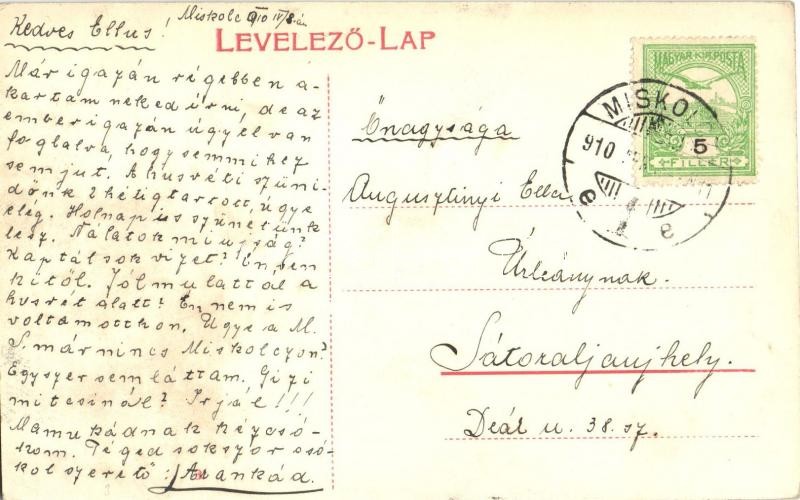 Miskolc 910 IV/8-án
Kedves Ellus!
LEVELEZŐ-LAP
Már igazán régebben a-
kartam neked írni, de az
ember igazán úgy el van
foglalva, hogy semmihez
sem jut. A husvéti szüni-
dőnk 2 hétig tartott, úgye
elég. Holnap is szünetünk
lesz. Nálatok mi ujság?
Kaptál sok vizet? Én sen
kitől. Jól mulattál a
husvét alatt? Én nem is
voltam otthon. Ugye a M.
S. már nincs Miskolczon?
Egyszer sem láttam, Gizi
mit csinál? Irjál!!!
Mamukádnak kézcsó-
kom. Téged sokszor csó-
kol szerető: Arankád.
MAGYAR KIR. POSTA
5
FILLÉR
MISKOL
910
Őnagysága
Augusztinyi Ella
Úrleánynak.
Sátoraljaujhely.
Deák u. 38. sz.